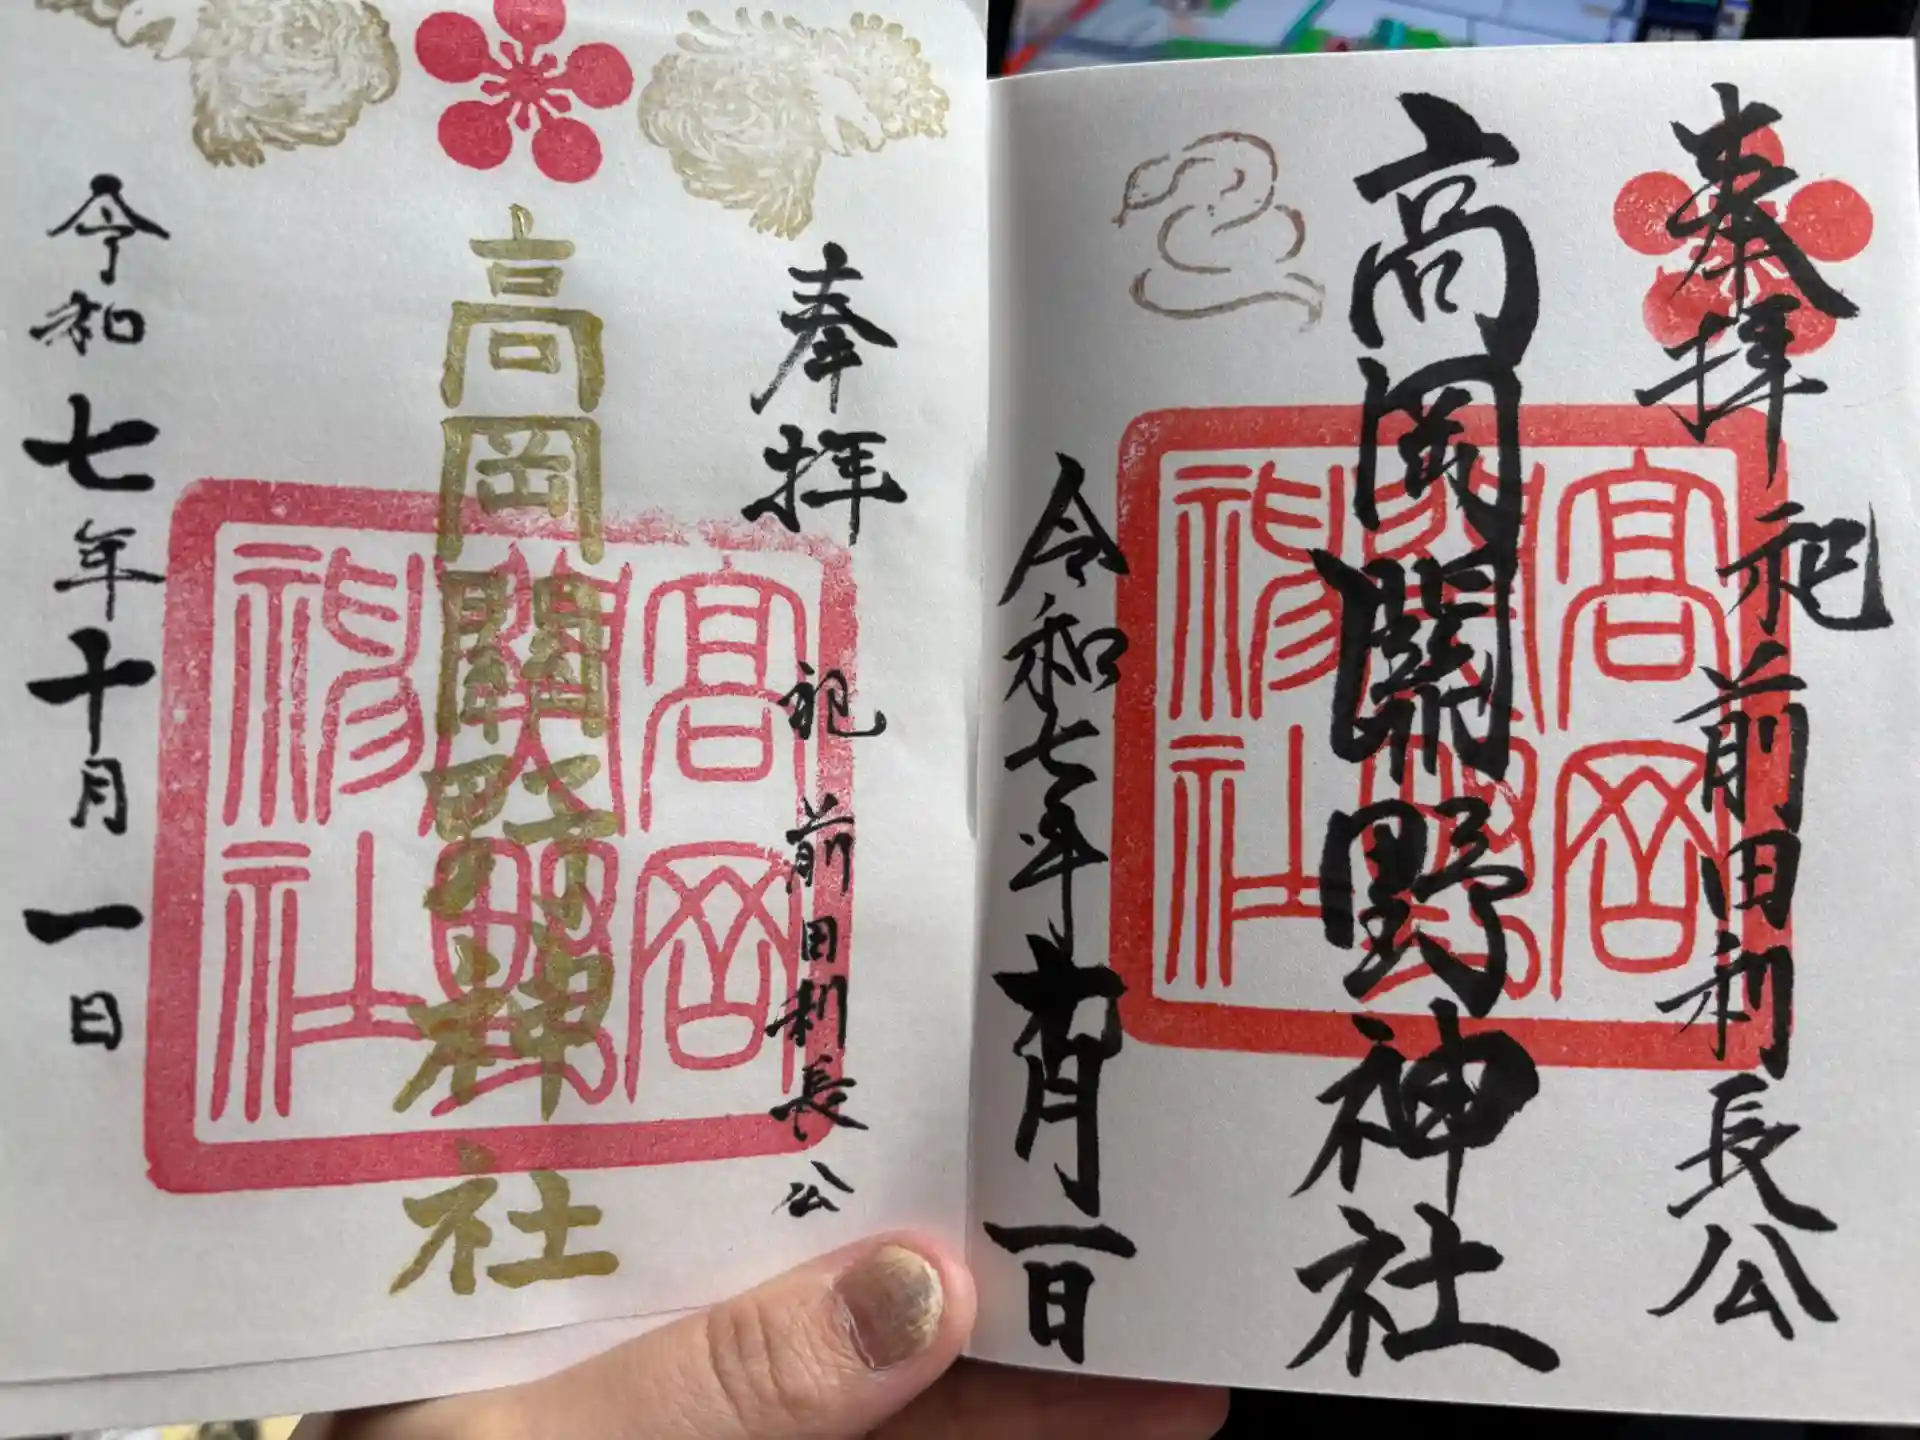 奉拝
祀 前田利長公
高岡關野神社
令和七年十月一日
髙岡
關野
神社
奉拝
祀 前田利長公
高岡關野神社
令和七年十月一日
髙岡
關野
神社